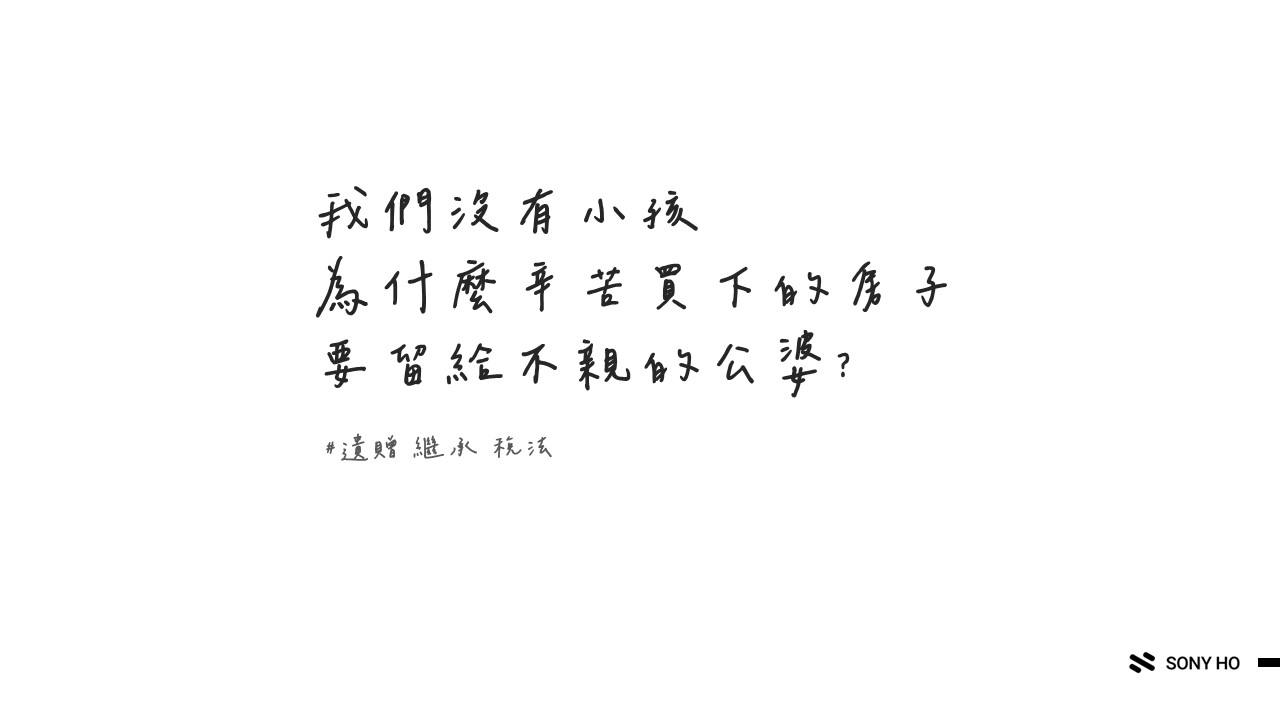 我們沒有小孩
為什麼辛苦買下的房子
要留給不親的公婆?
#遺贈 繼承 稅法
SONY HO